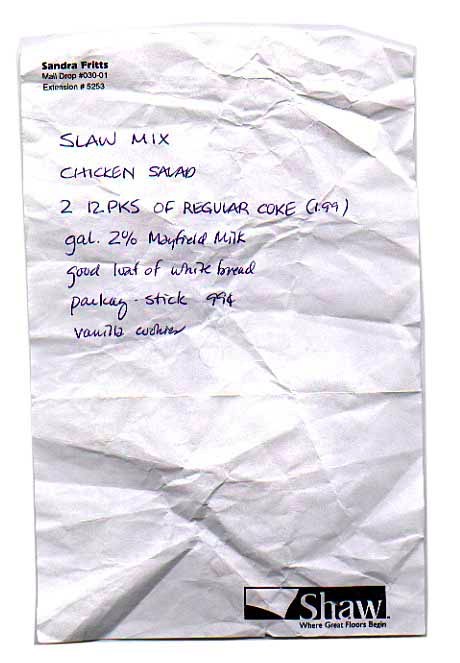 Sandra Fritts
Mail Drop #030-01
Extension # 5253
SLAW MIX
CHICKEN SALAD
2 12.PKS OF REGULAR COKE (1.99)
gal. 2% Mayfield Milk
good loaf of white bread
parkay - stick 99¢
vanilla cookies
Shaw
Where Great Floors Begin